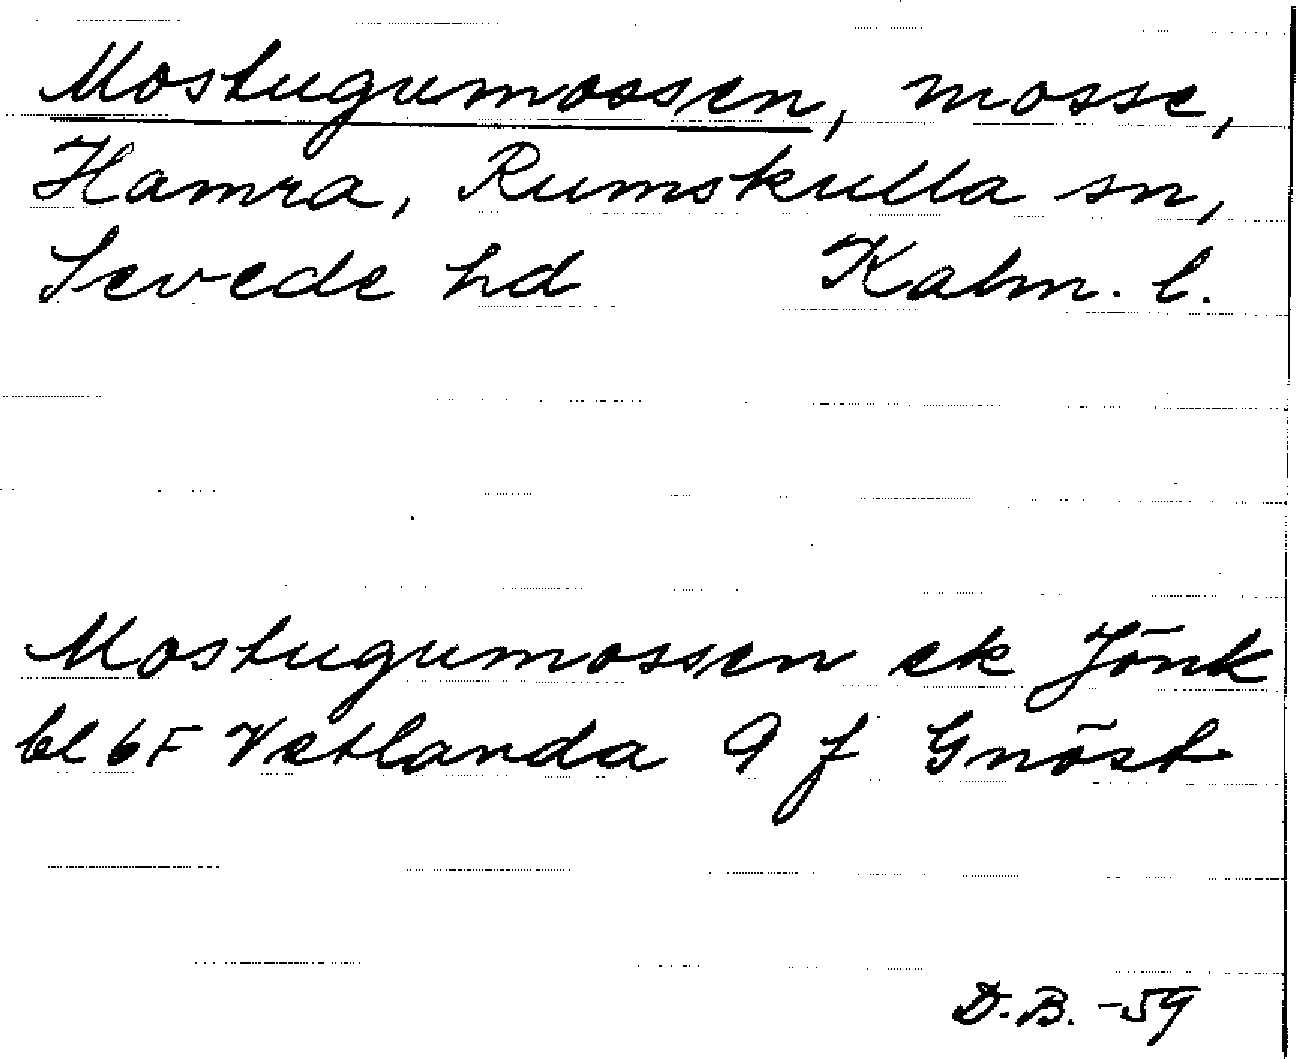 Mostugumossen, mosse,
Hamra, Rumskulla sn,
Sevede hd Kalm. l.
Mostugumossen ek Jönk
bl 6F Vetlanda 9 f Gnöst
D.B. -59